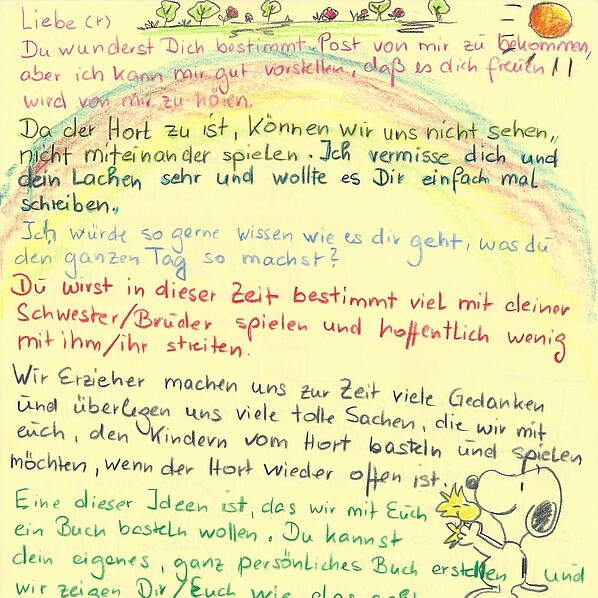 Liebe (r)
Du wunderst Dich bestimmt Post von mir zu bekommen,
aber ich kann mir gut vorstellen, daß es dich freuen !!
wird von mir zu hören.
Da der Hort zu ist, können wir uns nicht sehen,
nicht miteinander spielen. Ich vermisse dich und
dein Lachen sehr und wollte es Dir einfach mal
schreiben.
Ich würde so gerne wissen wie es dir geht, was du
den ganzen Tag so machst?
Du wirst in dieser Zeit bestimmt viel mit deiner
Schwester/Brüder spielen und hoffentlich wenig
mit ihm/ihr streiten.
Wir Erzieher machen uns zur Zeit viele Gedanken
und überlegen uns viele tolle Sachen, die wir mit
euch, den Kindern vom Hort basteln und spielen
möchten, wenn der Hort wieder offen ist.
Eine dieser Ideen ist, das wir mit Euch
ein Buch basteln wollen. Du kannst
dein eigenes, ganz persönliches Buch erstellen und
wir zeigen Dir/Euch wie das geht